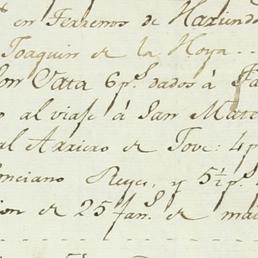 en Terrenos de Hazienda
Joaquin de la Hoya
Vata 6 p.s dados à
al viaje à San Mat
al Arriero de Tove: 4 p
Ponciano Reyes, y 5½ p.s
de 25 fan.s de mai